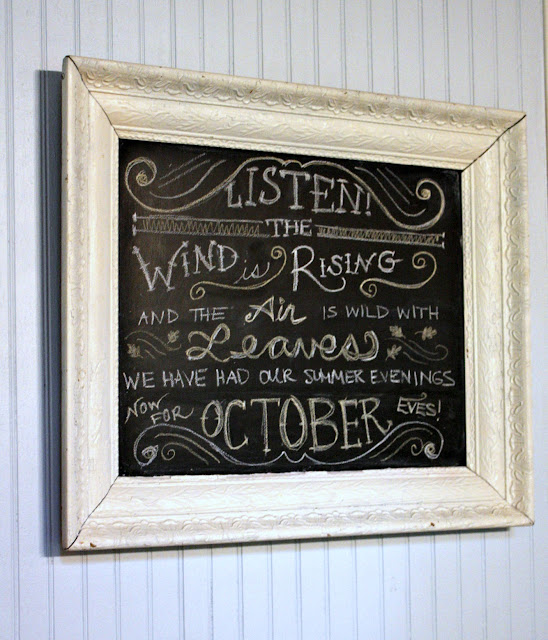 LISTEN!
THE
WIND is RISING
AND THE Air IS WILD WITH
Leaves
WE HAVE HAD OUR SUMMER EVENINGS
NOW FOR OCTOBER EVES!